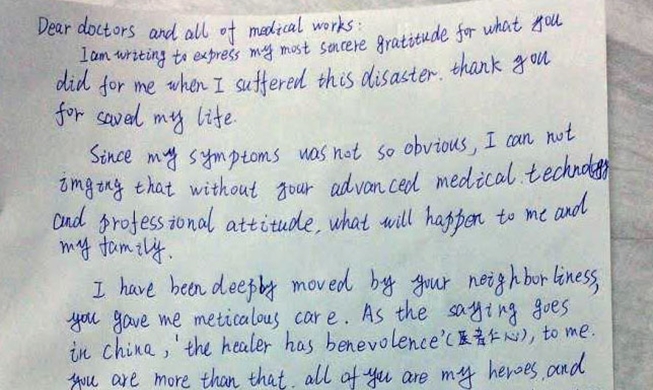 Dear doctors and all of medical works:
I am writing to express my most sincere gratitude for what you
did for me when I suffered this disaster. thank you
for saved my life.
Since my symptoms was not so obvious, I can not
imging that without your advanced medical technology
and professional attitude, what will happen to me and
my family.
I have been deeply moved by your neighborliness,
you gave me meticalous care. As the saying goes
in China, 'the healer has benevolence'(医者仁心), to me.
you are more than that. all of you are my heroes, and